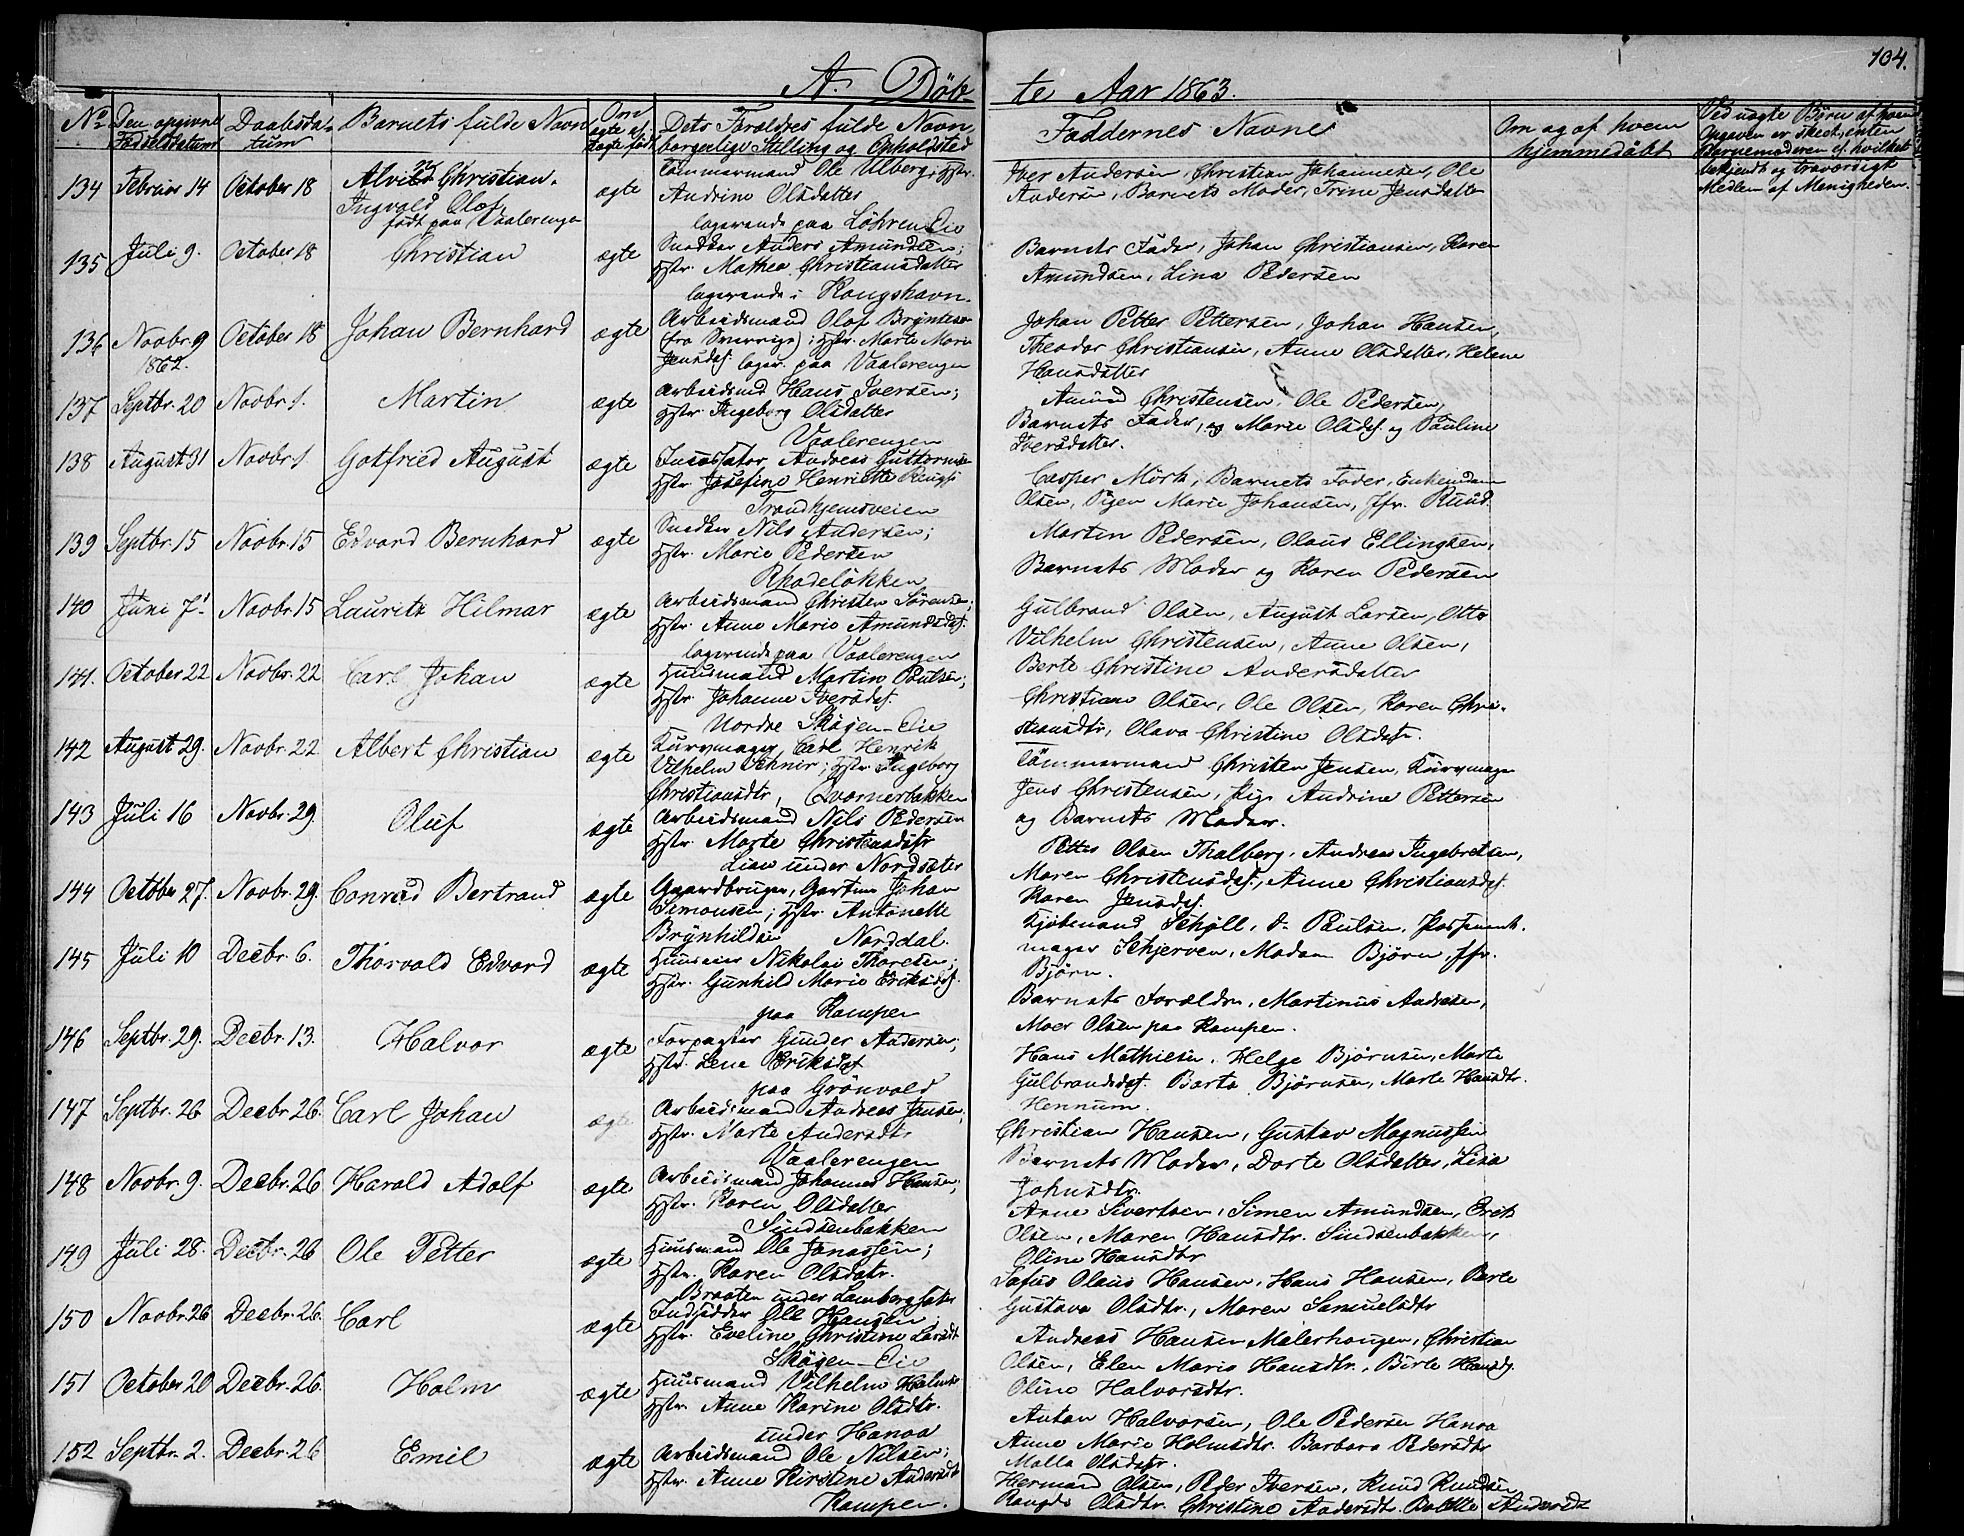 104.
A. Döb-
te Aar 1863.
No
Den opgivne Fødselsdatum
Daabsdatum
Barnets fulde Navn
Om ægte el. uægte født
Dets Forældres fulde Navn, borgerlige Stilling og Opholdssted
Faddernes Navne
Om og af hvem hjemmedøbt
Ved uægte Børn af hvem
Opgaven er skeet, enten
Barnemoderen el. hvilket
bekjendt og troværdigt
Medlem af Menigheden.
134 Februar 14 October 18 Christian. ægte
Ingvald Olaf
født paa Vaalerengen
Tømmermand Ole Ulberg, Hstr.
Andrine Olsdatter
logerende paa Løhren Eie
Iver Andersen, Christian Johannesen, Ole
Andersen, Barnets Moder, Trine Jensdatter
135 Juli 9. October 18 Christian ægte
Snedker Anders Amundsen;
Hstr. Mathea Christiansdatter
logerende i Kongshavn.
Barnets Fader, Johan Christiansen, Karen
Amundsen, Lina Pedersen
136 Novbr. 9 1862. October 18 Johan Bernhard ægte
Arbeidsmand Olof Bryntesen
(fra Sverrige); Hstr. Marte Marie
Jensdt. loger. paa Vaalerengen
Johan Petter Pettersen, Johan Hansen,
Theodor Christiansen, Anne Olsdatter, Helene
Hansdatter
137 Septbr. 20 Novbr. 1. Martin ægte
Arbeidsmd Hans Iversen;
Hstr. Ingeborg Olsdatter
Vaalerengen
Amund Christensen, Ole Pedersen,
Barnets Fader, og Marie Olsdt. og Pauline
Iversdatter.
138 August 31 Novbr. 1 Gotfried August ægte
Andreas Guttormsen
Hstr. Josefine Henriette
Trondhjemsveien
Casper Mörk, Barnets Fader, Enkemadam
Olsen, Pigen Marie Johansen, Jfr. Ruud.
139 Septbr. 15 Novbr. 15 Edvard Bernhard ægte
Snedker Nils Andersen;
Hstr. Marie Pedersen
Rhodeløkken
Martin Pedersen, Olaus Ellingsen,
Barnets Moder og Karen Pedersen
140 Juni 7. Novbr. 15 Lauritz Hilmar ægte
Arbeidsmand Christen Sørensen;
Hstr. Anne Marie Amundsdt.
logerende paa Vaalerengen
Gulbrand Olsen, August Larsen, Otto
Vilhelm Christensen, Anne Olsen,
Berte Christine Andersdatter
141. October 22 Novbr. 22 Carl Johan ægte
Huusmand Martin Poulsen;
Hstr. Johanne Iversdt.
Nordre Skøjen-Eie
Christian Olsen, Ole Olsen, Karen Chri-
stiansdtr, Olava Christine Olsdtr.
142 August 29. Novbr. 22 Albert Christian ægte
Kurvmager Carl Henrik
Vilhelm Schnir; Hstr. Ingeborg
Christiansdtr, Qværnerbakken
Tömmermand Christen Jensen, Kurvmager
Jens Christensen, Pige Andrine Pettersen
og Barnets Moder.
143 Juli 16 Novbr. 29. Oluf ægte
Arbeidsmand Nils Pedersen
Hstr. Marte Christensdtr
Lien under Nordsæter
Petter Olsen Thalberg, Andreas Ingebretsen,
Maren Christensdt., Anne Christiansdt.
Karen Jensdt.
144 October 27. Novbr. 29. Conrad Bertrand ægte
Gaardbruger, Gartner Johan
Simonsen; Hstr. Antonette
Brynhildsen Norddal.
Kjøbmand Schjøll, do Paulsen, Possement-
mager Schjerven, Madam Bjørn, Jfr.
Bjørn.
145 Juli 10 Decbr. 6. Thorvald Edvard ægte
Huuseier Nikolai Thoresen;
Hstr. Gunhild Marie Eriksdt.
paa Kampen
Barnets Forældre, Martinus Andersen,
Moer Olsen paa Kampen.
146 Septbr. 29. Decbr. 13. Halvor ægte
Forpagter Gunder Andersen;
Hstr. Lene Eriksdt
paa Grönvold
Hans Mathiesen, Helge Bjørnsen, Marte
Gulbrandsdt. Barta Bjørnsen, Marte Hansdtr.
Hennum.
147 Septbr. 26 Decbr. 26. Carl Johan ægte
Arbeidsmand Andreas Jensen,
Hstr. Marte Andersdtr
Vaalerengen
Christian Hansen, Gustav Magnussen
Barnets Moder, Dorte Olsdatter, Lisa
Johnsdtr.
148 Novbr. 9. Decbr. 26 Harald Adolf ægte
Arbeidsmand Johannes Hansen,
Hstr. Karen Olsdatter
Sindsenbakken
Arne Sivertsen, Simen Amundsen, Erik
Olsen, Maren Hansdtr. Sindsenbakken,
Oline Hansdtr
149 Juli 28. Decbr. 26 Ole Petter ægte
Huusmand Ole Jonassen;
Hstr. Karen Olsdatr.
Braaten under Lambergsæter
Sofus Olaus Hansen, Hans Hansen, Berte
Gustava Olsdtr., Maren Samuelsdtr
150 Novbr. 26 Decbr. 26. Carl ægte
Indsidder Ole Hansen;
Hstr. Eveline Christine Larsdt
Skøjen-Eie
Andreas Hansen Malerhaugen, Christian
Olsen, Elen Marie Hansdtr., Berte Hansdt.
Oline Halvorsdtr.
151 October 20 Decbr. 26. Holm ægte
Huusmand Vilhelm Holmsen
Hstr. Anne Karine Olsdtr.
under Hanoa
Anton Halvorsen, Ole Pedersen Hanoa
Anne Marie Holmsdtr. Barbara Pedersdtr
Malla Olsdatr.
152 Septbr. 2. Decbr. 26 Emil ægte
Arbeidsmand Ole Nilsen;
Hstr. Anne Kirstine Andersdt
Kampen.
Herman Olsen, Peder Iversen, Knud Knudsen
Olsdtr. Christine Andersdtr. Andersdt